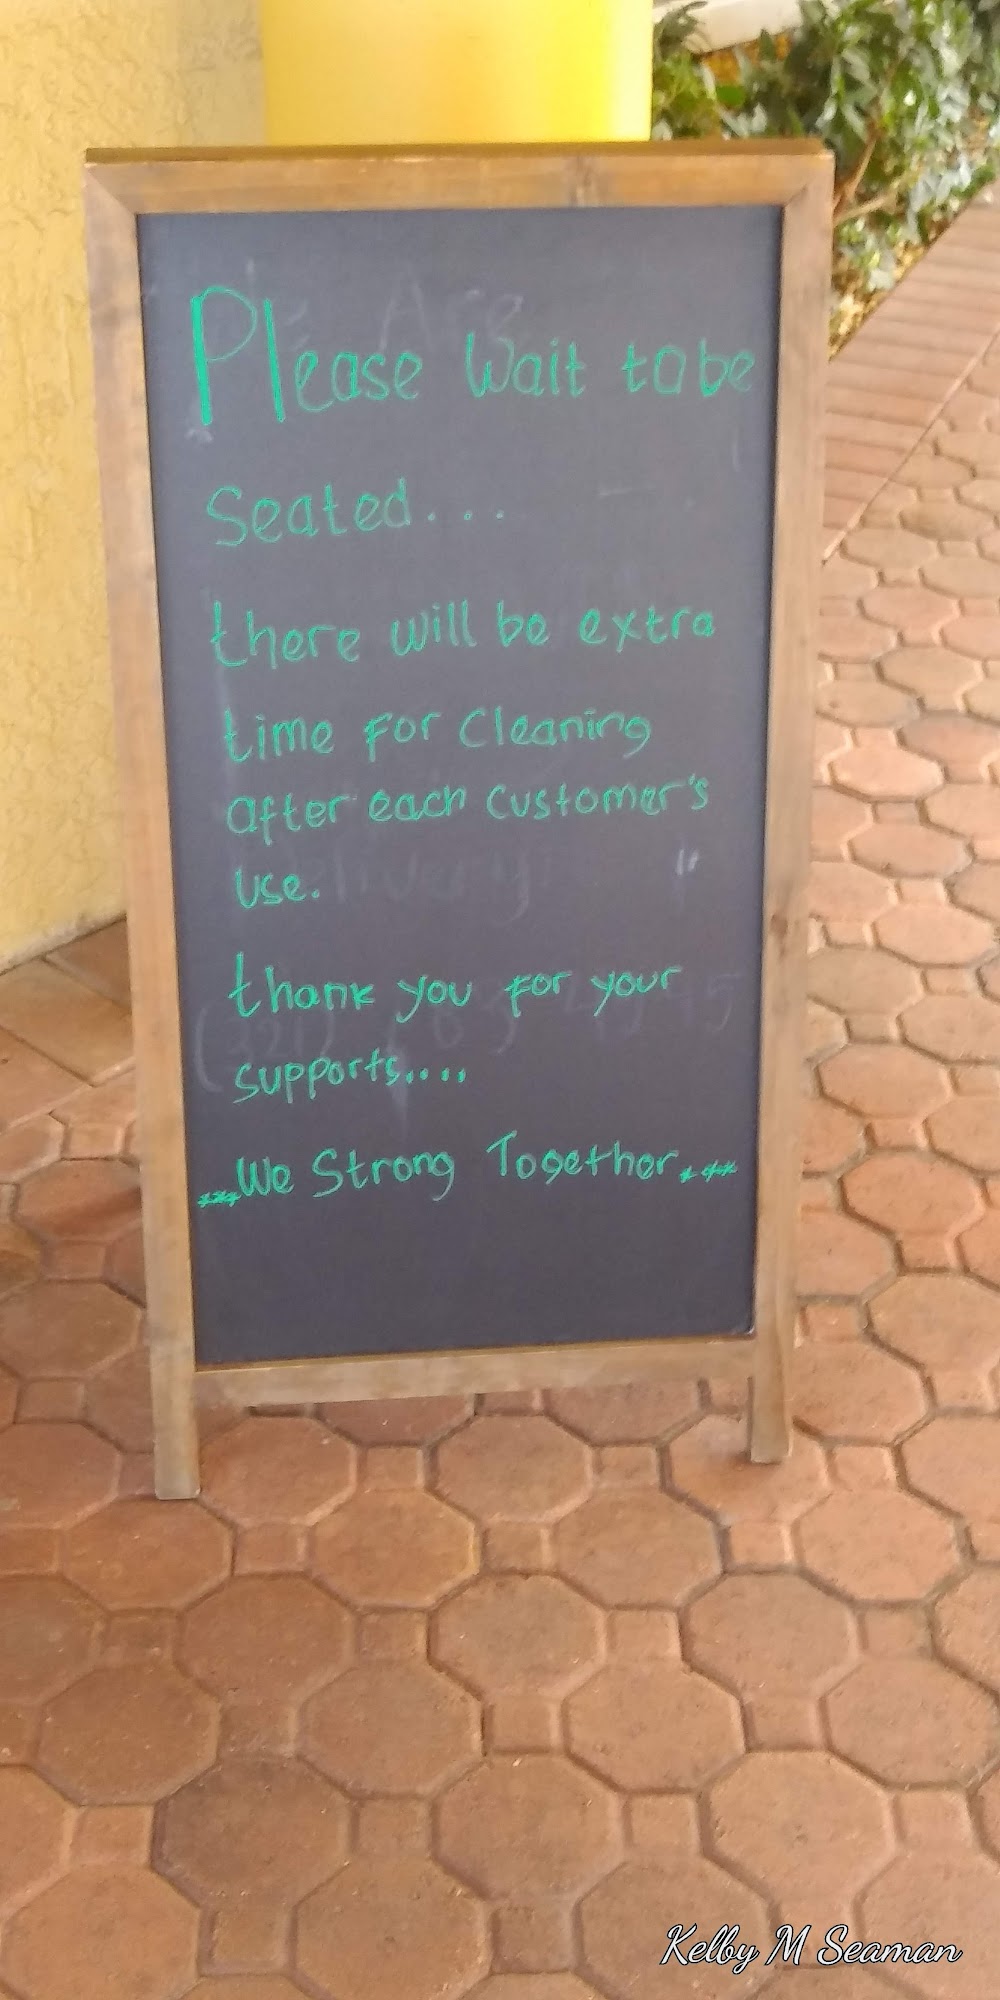 Please Wait to be
Seated...
there will be extra
time for Cleaning
after each customer's
use.
thank you for your
supports....
***We Strong Together.***
Kelby M Seaman